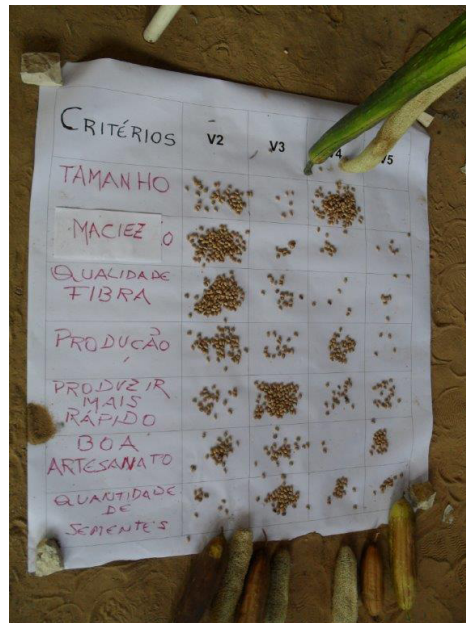 CRITÉRIOS V2 V3 V4 V5
TAMANHO
MACIEZ O
QUALIDADE
FIBRA
PRODUÇÃO
PRODUZIR
MAIS
RÁPIDO
BOA
ARTESANATO
QUANTIDADE
DE
SEMENTES